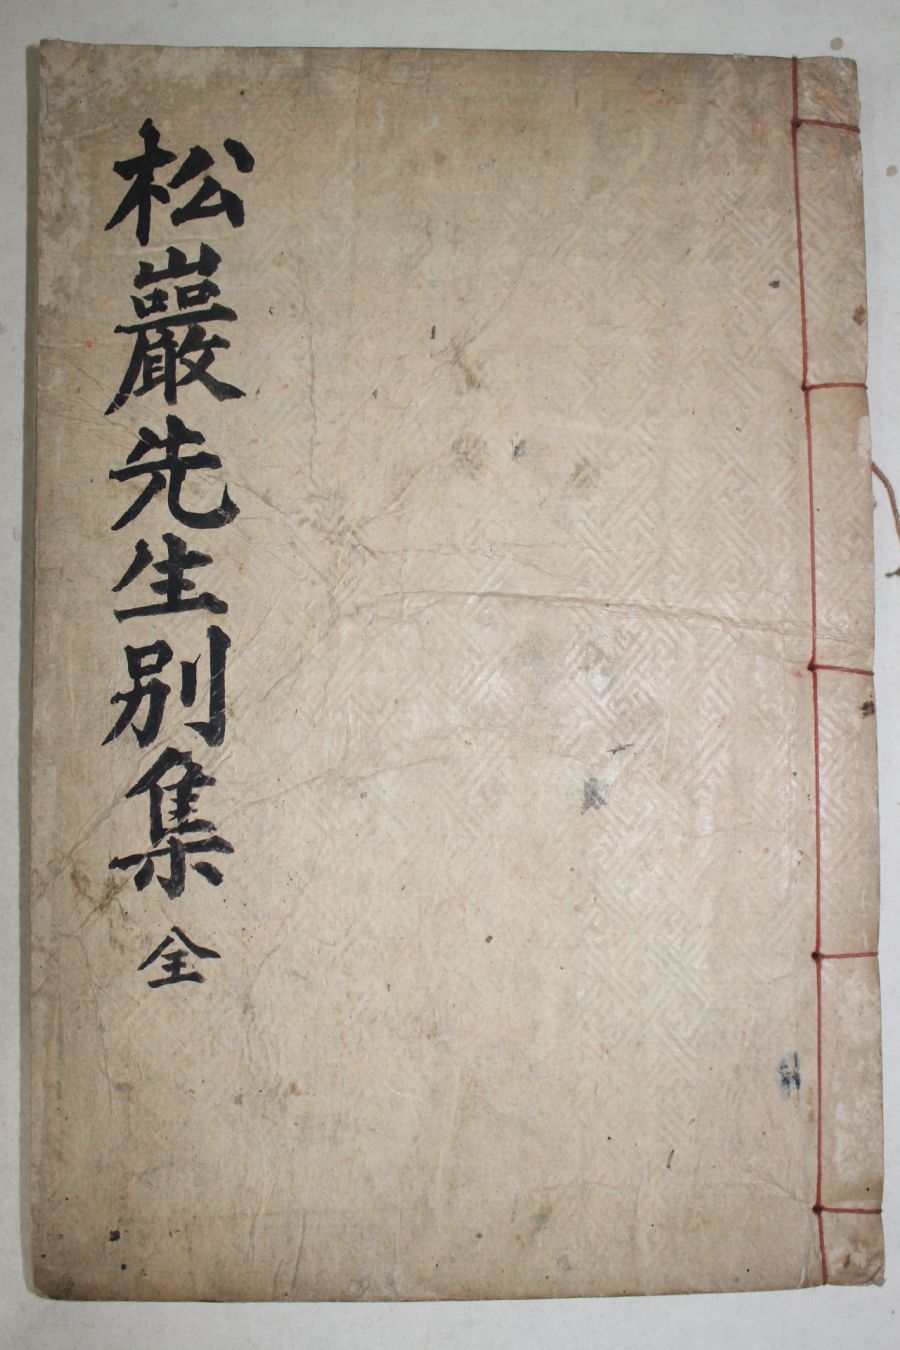 松巖先生别集 全